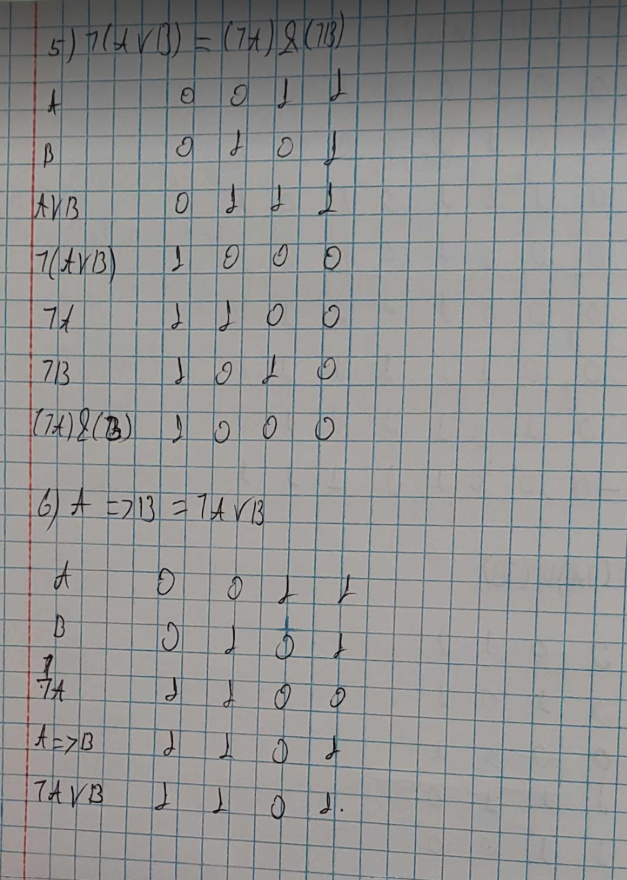 5) ⅂(A∨B) = (⅂A) & (⅂B)
A 0 0 1 1
B 0 1 0 1
A∨B 0 1 1 1
⅂(A∨B) 1 0 0 0
⅂A 1 1 0 0
⅂B 1 0 1 0
(⅂A)&(⅂B) 1 0 0 0
6) A => B = ⅂A∨B
A 0 0 1 1
B 0 1 0 1
⅂A 1 1 0 0
A=>B 1 1 0 1
⅂A∨B 1 1 0 1.